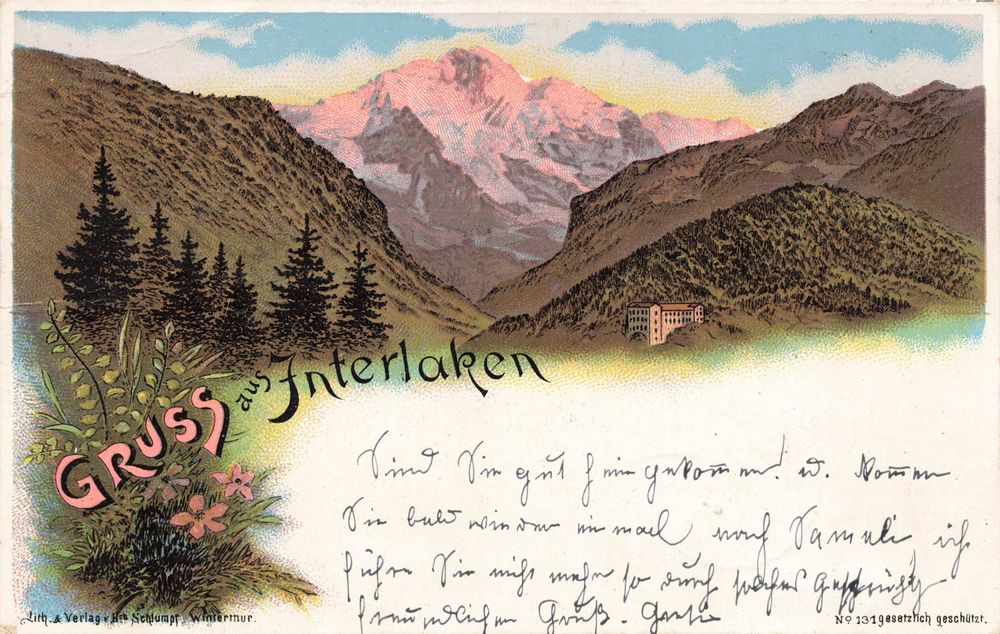 GRUSS aus Interlaken
Sind Sie gut heimgekommen! u. kommen
Sie bald wieder einmal nach Samuli, ich
führe Sie nicht mehr so durch solches
freundlichen Gruß.
Lith. & Verlag v. Hch Schlumpf, Winterthur.
No 131 gesetzlich geschützt.